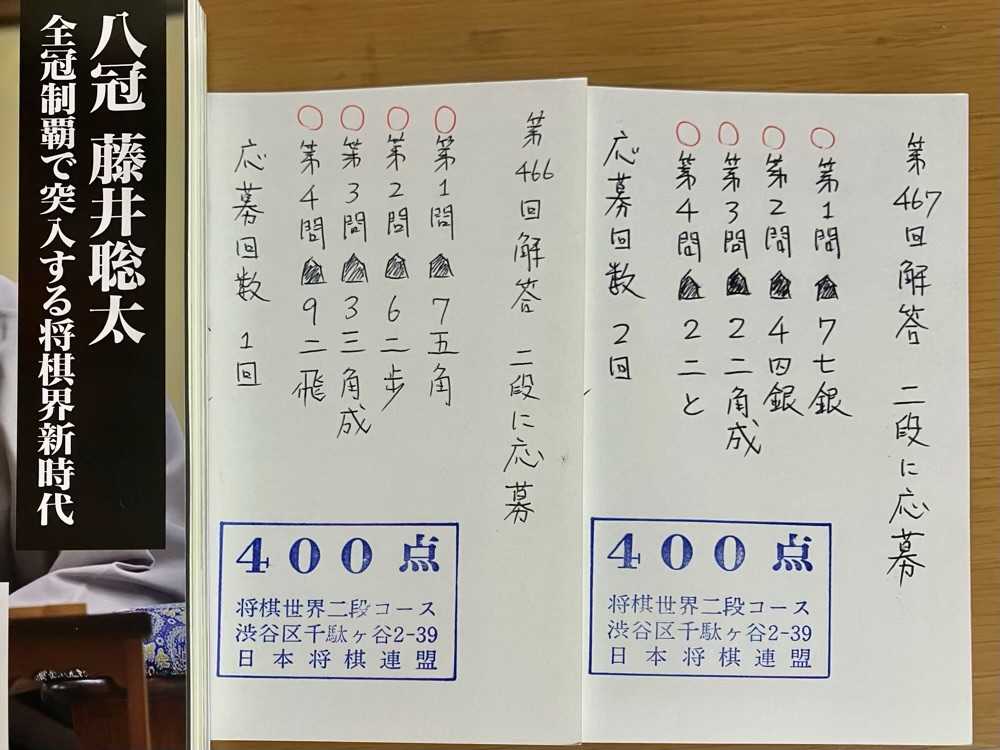 八冠 藤井聡太
全冠制覇で突入する将棋界新時代
第466回解答 二段に応募
第1問 ☗7五角
第2問 ☗6二歩
第3問 ☗3三角成
第4問 ☗9二飛
応募回数 1回
400点
将棋世界二段コース
渋谷区千駄ヶ谷2-39
日本将棋連盟
第467回解答 二段に応募
第1問 ☗7七銀
第2問 ☗4四銀
第3問 ☗2二角成
第4問 ☗2二と
応募回数 2回
400点
将棋世界二段コース
渋谷区千駄ヶ谷2-39
日本将棋連盟